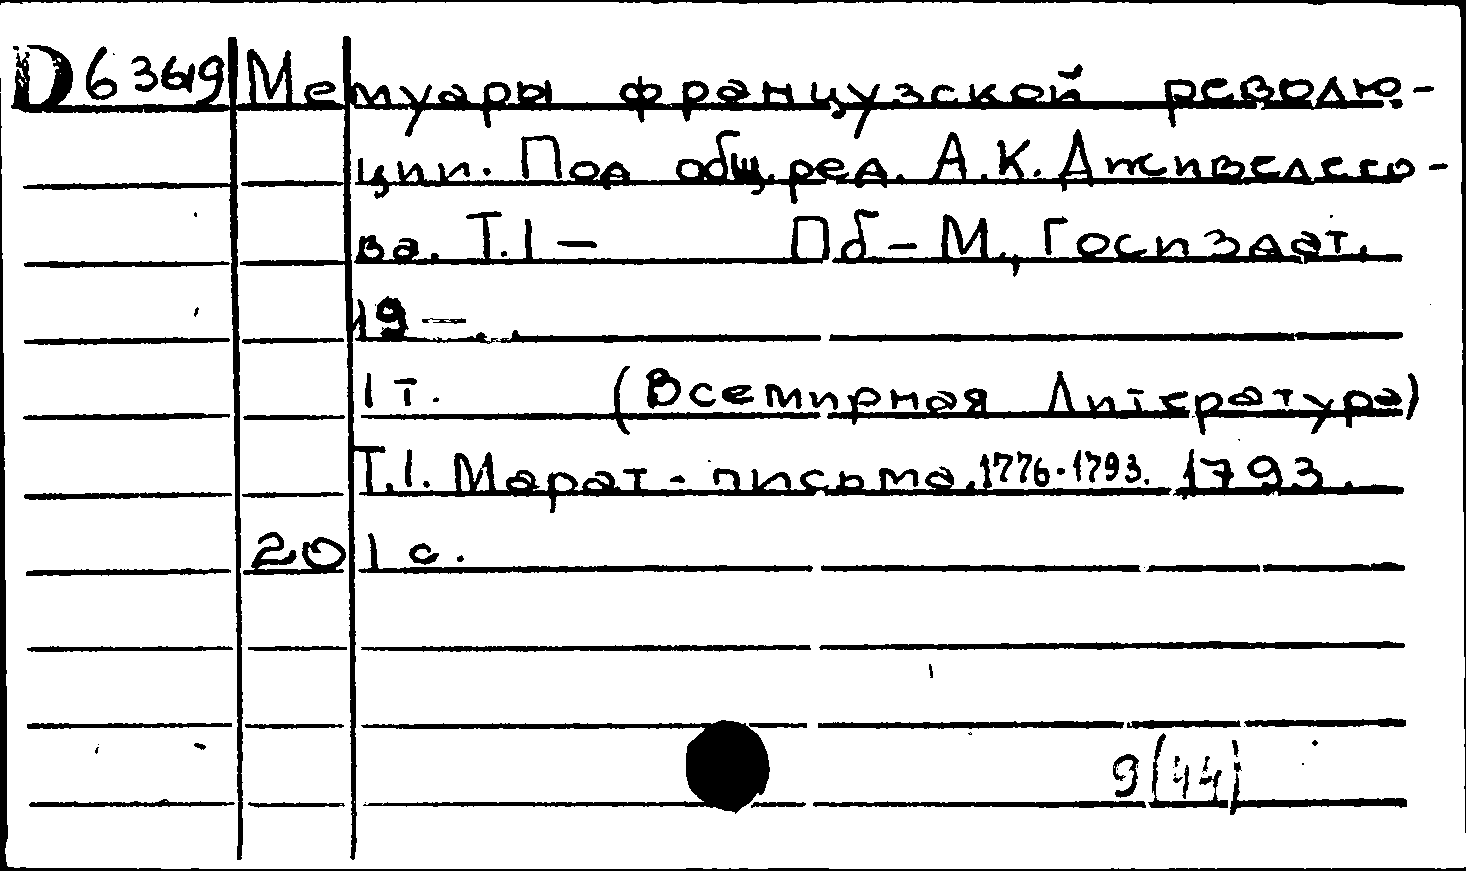 D6369 Мемуары французской револю-
ции. Под общ. ред. А.К. Дживелего-
ва. Т.1 — Пб - М., Госиздат.
19 —
1 т. (Всемирная Литература)
Т.1. Марат - письма. 1776-1793. 1793.
201 с.
9(44)